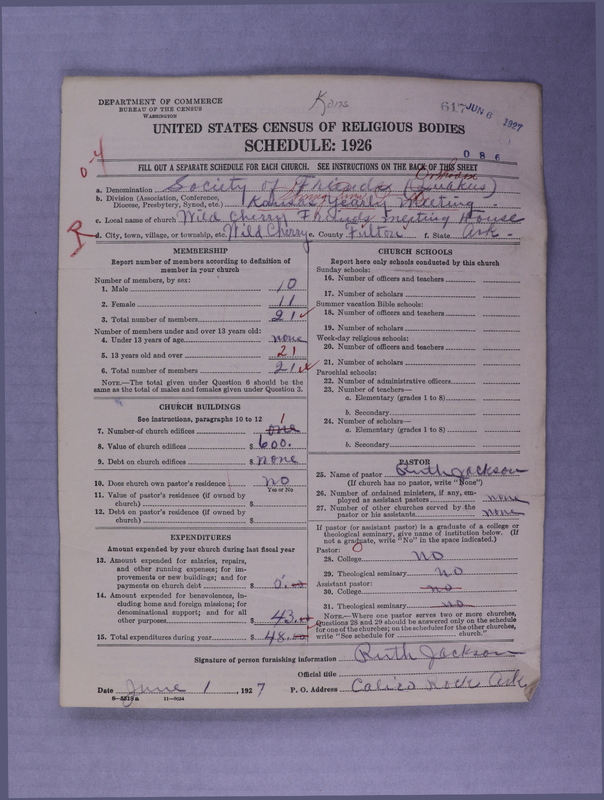 Kans
617 JUN 6 1927
DEPARTMENT OF COMMERCE
BUREAU OF THE CENSUS
WASHINGTON
UNITED STATES CENSUS OF RELIGIOUS BODIES
SCHEDULE: 1926
0 8 6
FILL OUT A SEPARATE SCHEDULE FOR EACH CHURCH. SEE INSTRUCTIONS ON THE BACK OF THIS SHEET
Orthodox
a. Denomination Society of Friends (Quakers)
b. Division (Association, Conference, Diocese, Presbytery, Synod, etc.) Kansas Yearly Meeting
c. Local name of church Wild Cherry Friends meeting House
d. City, town, village, or township, etc. Wild Cherry e. County Fulton f. State Ark.
MEMBERSHIP
Report number of members according to definition of
member in your church
Number of members, by sex:
1. Male 10
2. Female 11
3. Total number of members 21
Number of members under and over 13 years old:
4. Under 13 years of age none
5. 13 years old and over 21
6. Total number of members 21
NOTE.—The total given under Question 6 should be the
same as the total of males and females given under Question 3.
CHURCH BUILDINGS
See instructions, paragraphs 10 to 12
1
7. Number of church edifices one
8. Value of church edifices $ 600.
9. Debt on church edifices $ none
10. Does church own pastor's residence? no
Yes or No
11. Value of pastor's residence (if owned by
church) $
12. Debt on pastor's residence (if owned by
church) $
EXPENDITURES
Amount expended by your church during last fiscal year
13. Amount expended for salaries, repairs,
and other running expenses; for im-
provements or new buildings; and for
payments on church debt $
14. Amount expended for benevolences, in-
cluding home and foreign missions; for
denominational support; and for all
other purposes $ 43.00
15. Total expenditures during year $ 48.00
CHURCH SCHOOLS
Report here only schools conducted by this church
Sunday schools:
16. Number of officers and teachers
17. Number of scholars
Summer vacation Bible schools:
18. Number of officers and teachers
19. Number of scholars
Week-day religious schools:
20. Number of officers and teachers
21. Number of scholars
Parochial schools:
22. Number of administrative officers
23. Number of teachers—
a. Elementary (grades 1 to 8)
b. Secondary
24. Number of scholars—
a. Elementary (grades 1 to 8)
b. Secondary
PASTOR
25. Name of pastor Ruth Jackson
(If church has no pastor, write "None")
26. Number of ordained ministers, if any, em-
ployed as assistant pastors none
27. Number of other churches served by the
pastor or his assistants none
If pastor (or assistant pastor) is a graduate of a college or
theological seminary, give name of institution below. (If
not a graduate, write "No" in the space indicated.)
Pastor:
28. College no
29. Theological seminary no
Assistant pastor:
30. College no
31. Theological seminary no
NOTE.—Where one pastor serves two or more churches,
Questions 28 and 29 should be answered only on the schedule
for one of the churches; on the schedules for the other churches,
write "See schedule for ______ church."
Signature of person furnishing information Ruth Jackson
Official title
Date June 1, 1927 P. O. Address Calico Rock Ark.
11—9034